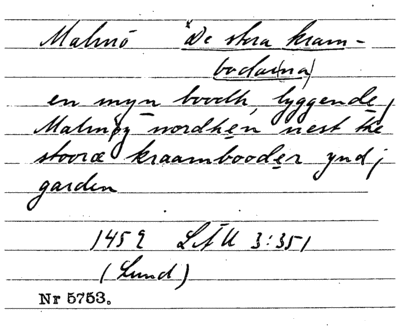 Malmö "De stora kram-
bodarna)
en myn boodh, lyggende j
Malmøy nordhen nest the
stooræ kraambooder ynd j
garden
1452 LÄU 3:351
(Lund)
Nr 5753.